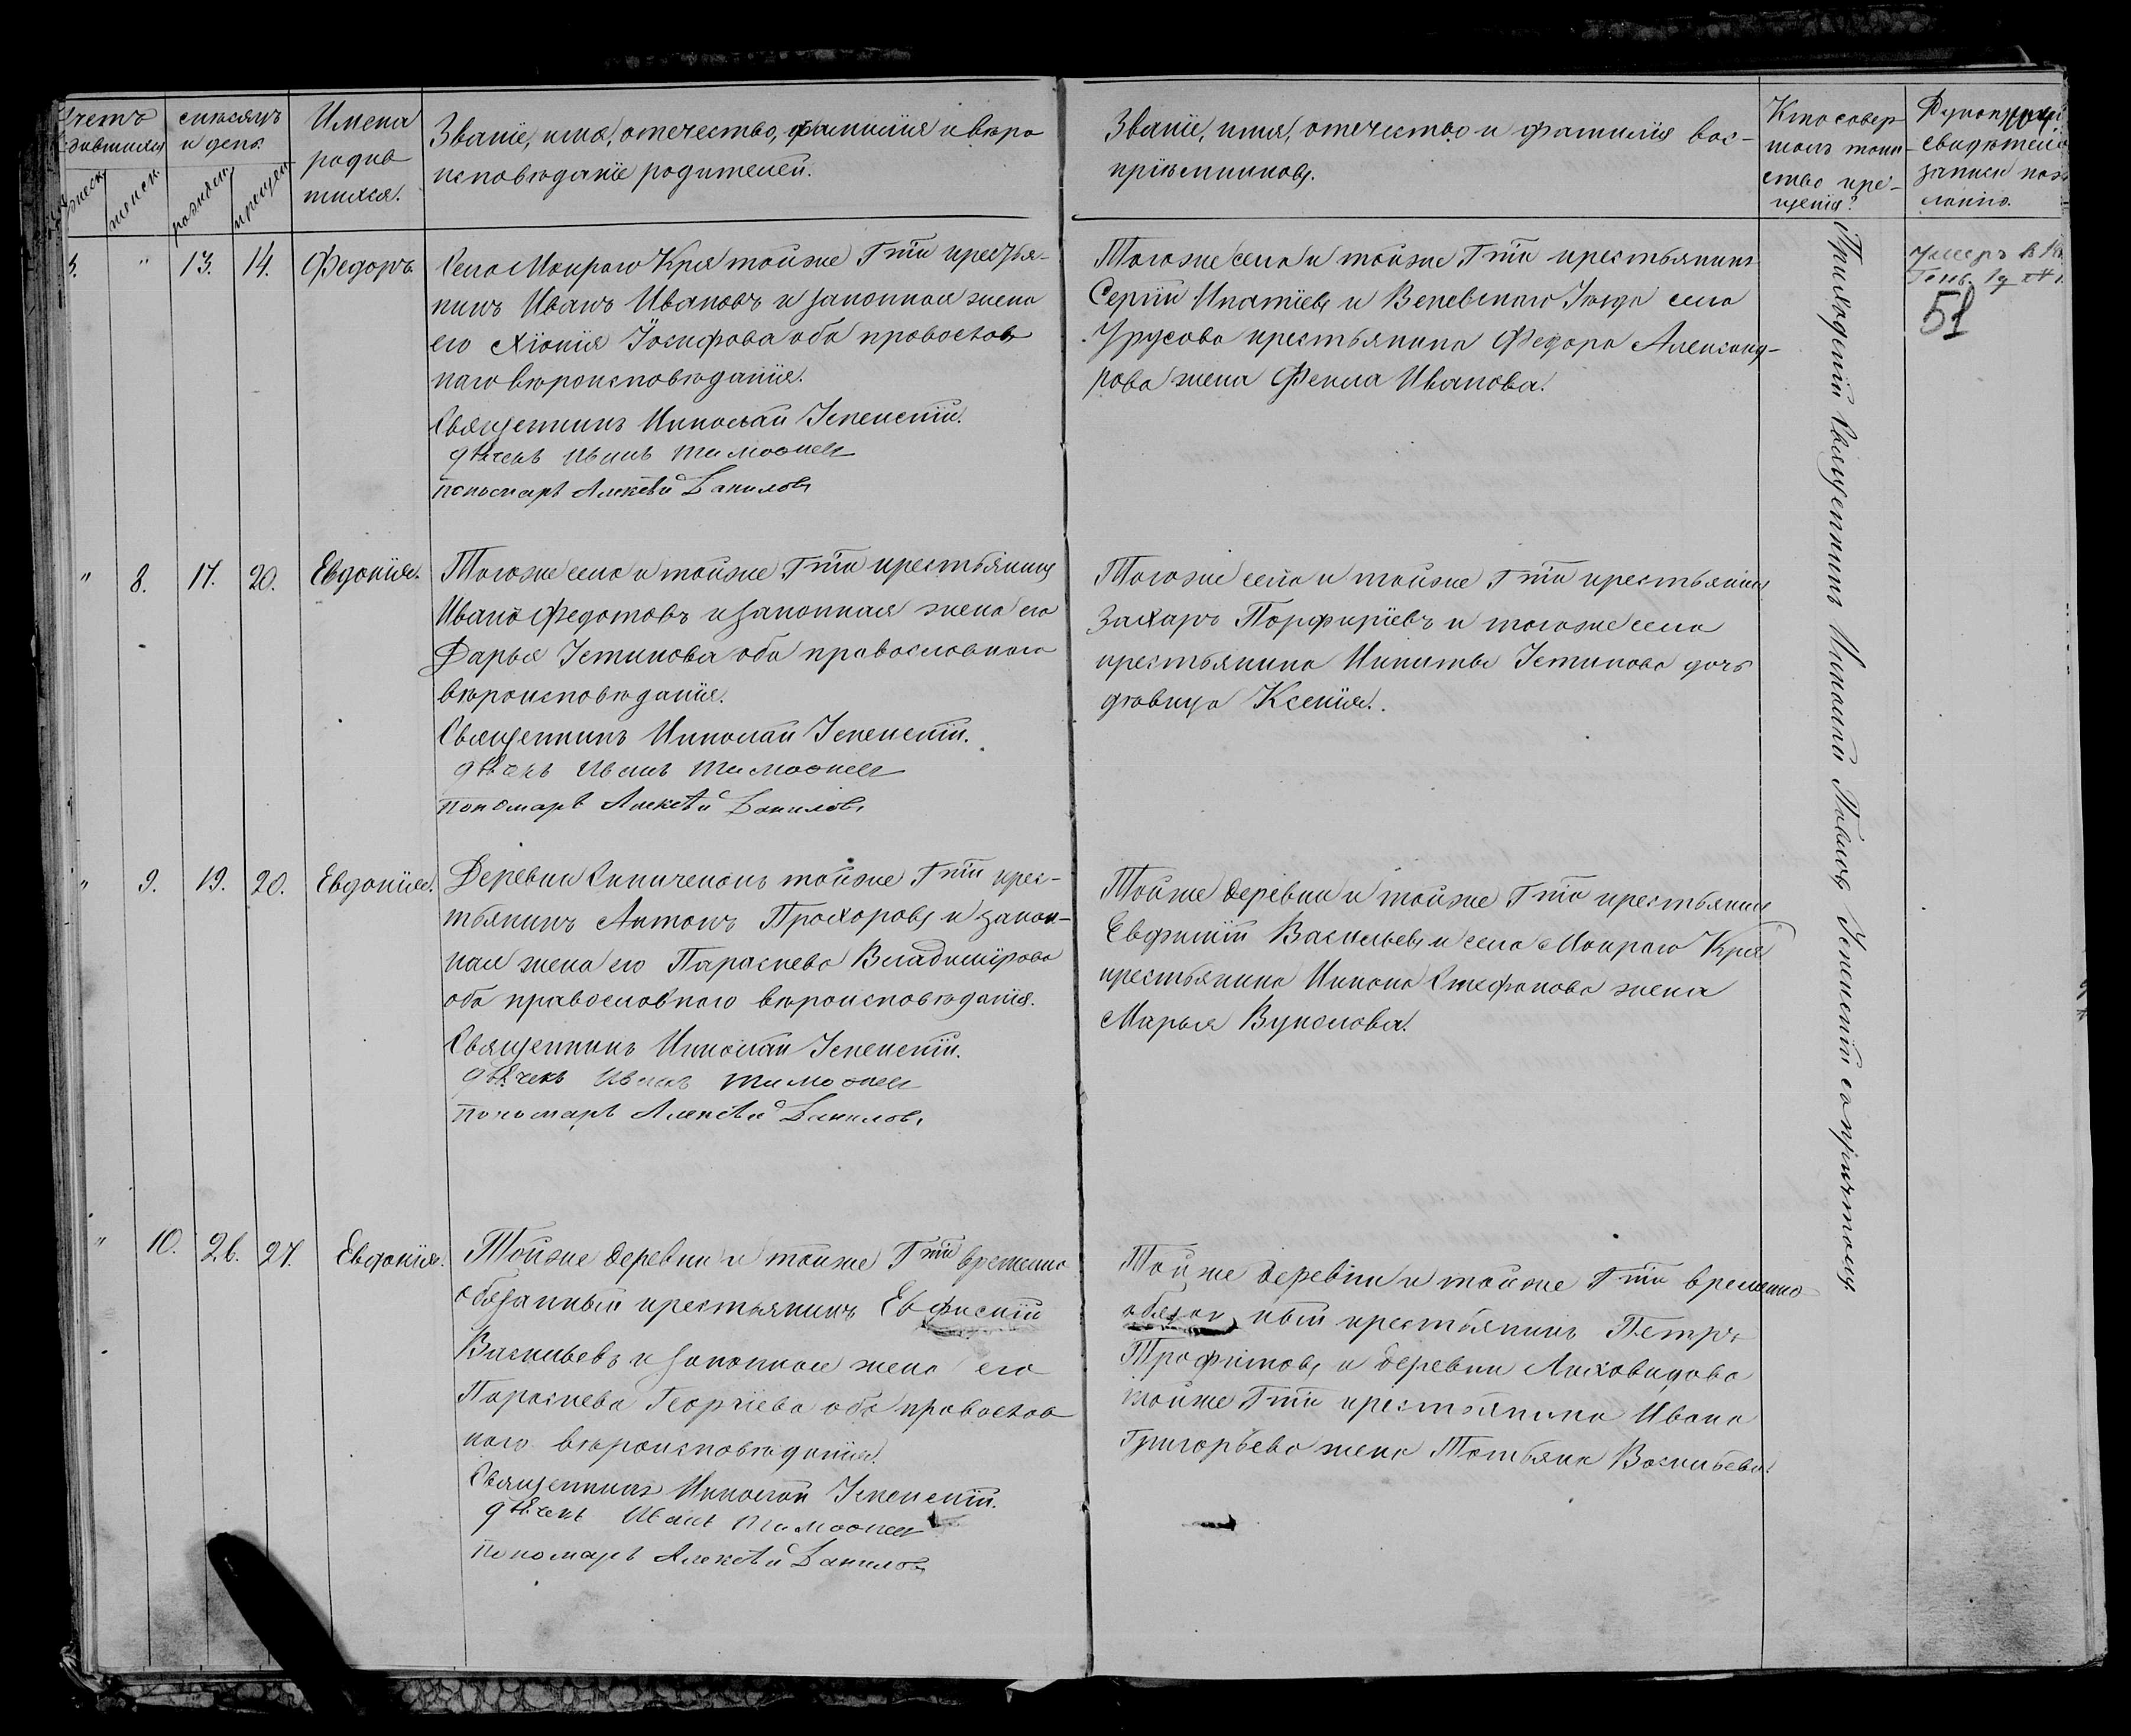 Счетъ родившихся
мужеск.
женск.
Мѣсяцъ и день
рожден.
крещен.
Имена
родив
шихся.
Званіе, имя, отчество, фамилія и вѣро
исповѣданіе родителей.
Званіе, имя, отчество и фамилія вос-
пріемниковъ.
Кто совер
шалъ таин
ство кре-
щенія?
свидѣтел
записи по
5. " 13. 14. Ѳедоръ.
Села Мокраго Кря тойже Гжи крестья-
нинъ Иванъ Ивановъ и законная жена
его Хіонія Іосифова оба православ
наго вѣроисповѣданія.
Священникъ Николай Успенскій.
дьячекъ Иванъ Тимоѳеев
пономарь Алексѣй Даниловъ
Тогоже села и тойже Гжи крестьянинъ
Сергій Игнатіевъ и Веневскаго Уѣзда села
Урусова крестьянина Ѳедора Александ-
рова жена Ѳекла Иванова.
Умеръ
51
" 8. 17. 20. Евдокія.
Тогоже села и тойже Гжи крестьянинъ
Иванъ Ѳедотовъ и законная жена его
Дарья Устинова оба православнаго
вѣроисповѣданія.
Священникъ Николай Успенскій.
дьячекъ Иванъ Тимоѳеев
пономарь Алексѣй Даниловъ
Тогоже села и тойже Гжи крестьянинъ
Захаръ Порфиріевъ и тогоже села
крестьянина Никиты Устинова дочь
дѣвица Ксенія.
" 9. 19. 20. Евдокія.
Деревни тойже Гжи крес-
тьянинъ Антонъ Прохоровъ и закон-
ная жена его Параскева Владимірова
оба православнаго вѣроисповѣданія.
Священникъ Николай Успенскій.
дьячекъ Иванъ Тимоѳеев
пономарь Алексѣй Даниловъ
Тойже деревни и тойже Гжи крестьянинъ
Евфимій Васильевъ и села Мокраго Кря
крестьянина Никона Стефанова жена
Марья Вуколова.
" 10. 26. 27. Евдокія.
Тойже деревни и тойже Гжи временно
обязанный крестьянинъ Евфимій
Васильевъ и законная жена его
Параскева Георгіева оба православ
наго вѣроисповѣданія.
Священникъ Николай Успенскій.
дьячекъ Иванъ Тимоѳеев
пономарь Алексѣй Даниловъ
Тойже деревни и тойже Гжи временно
обязанный крестьянинъ Петръ
Трофимовъ и деревни Лиховидова
тойже Гжи крестьянина Ивана
Григорьева жена Татьяна Васильева.
Приходскій Священникъ Николай Павловъ Успенскій съ причтомъ.